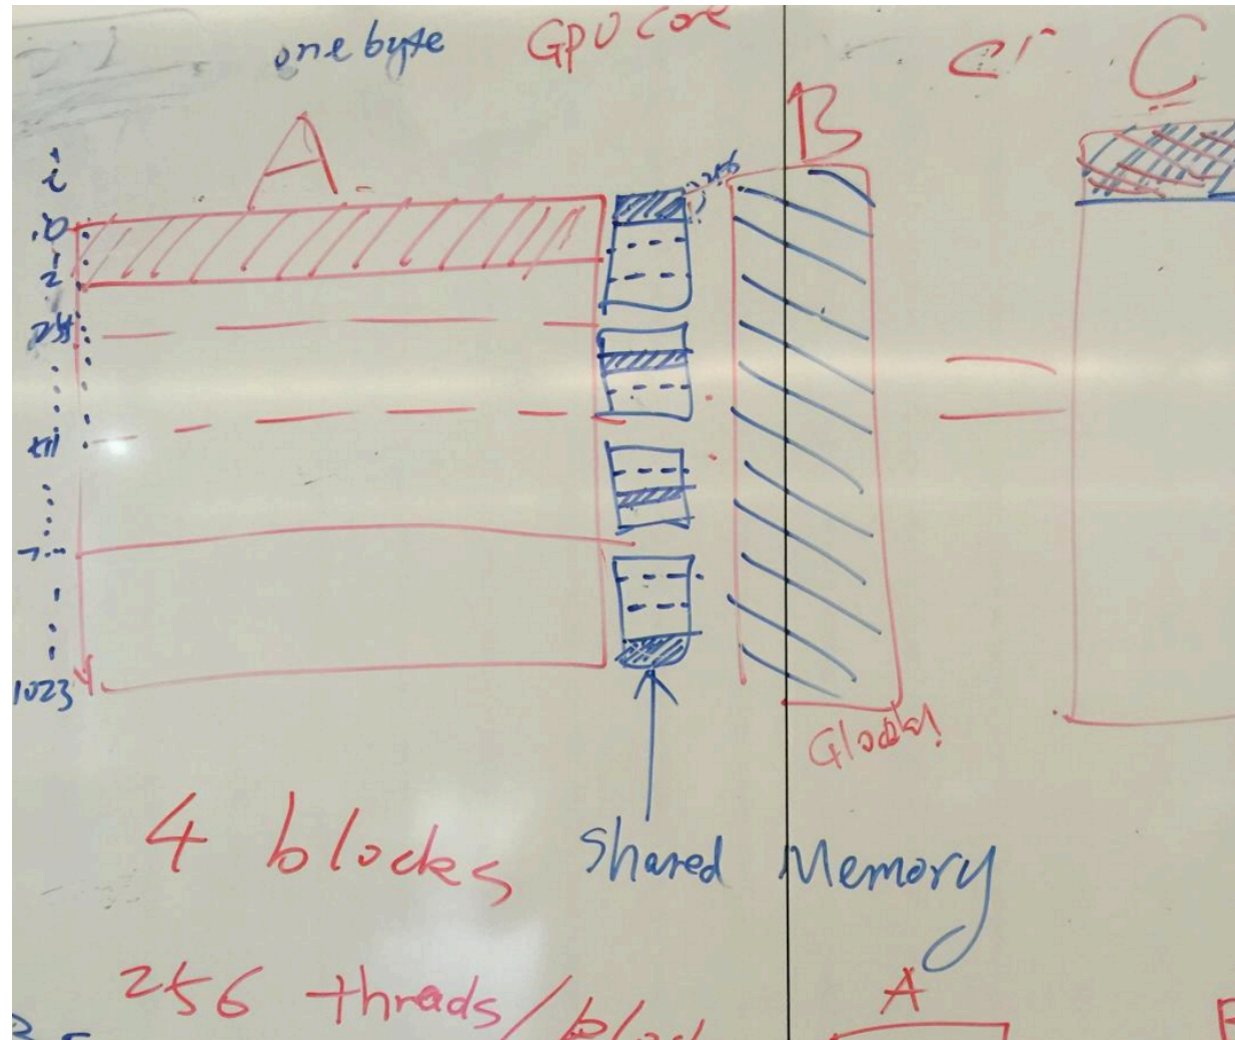 one byte GPU Core
C
A
B
i
256
0
1
2
255
1023
Global
4 blocks
Shared Memory
256 threads/bloc
A